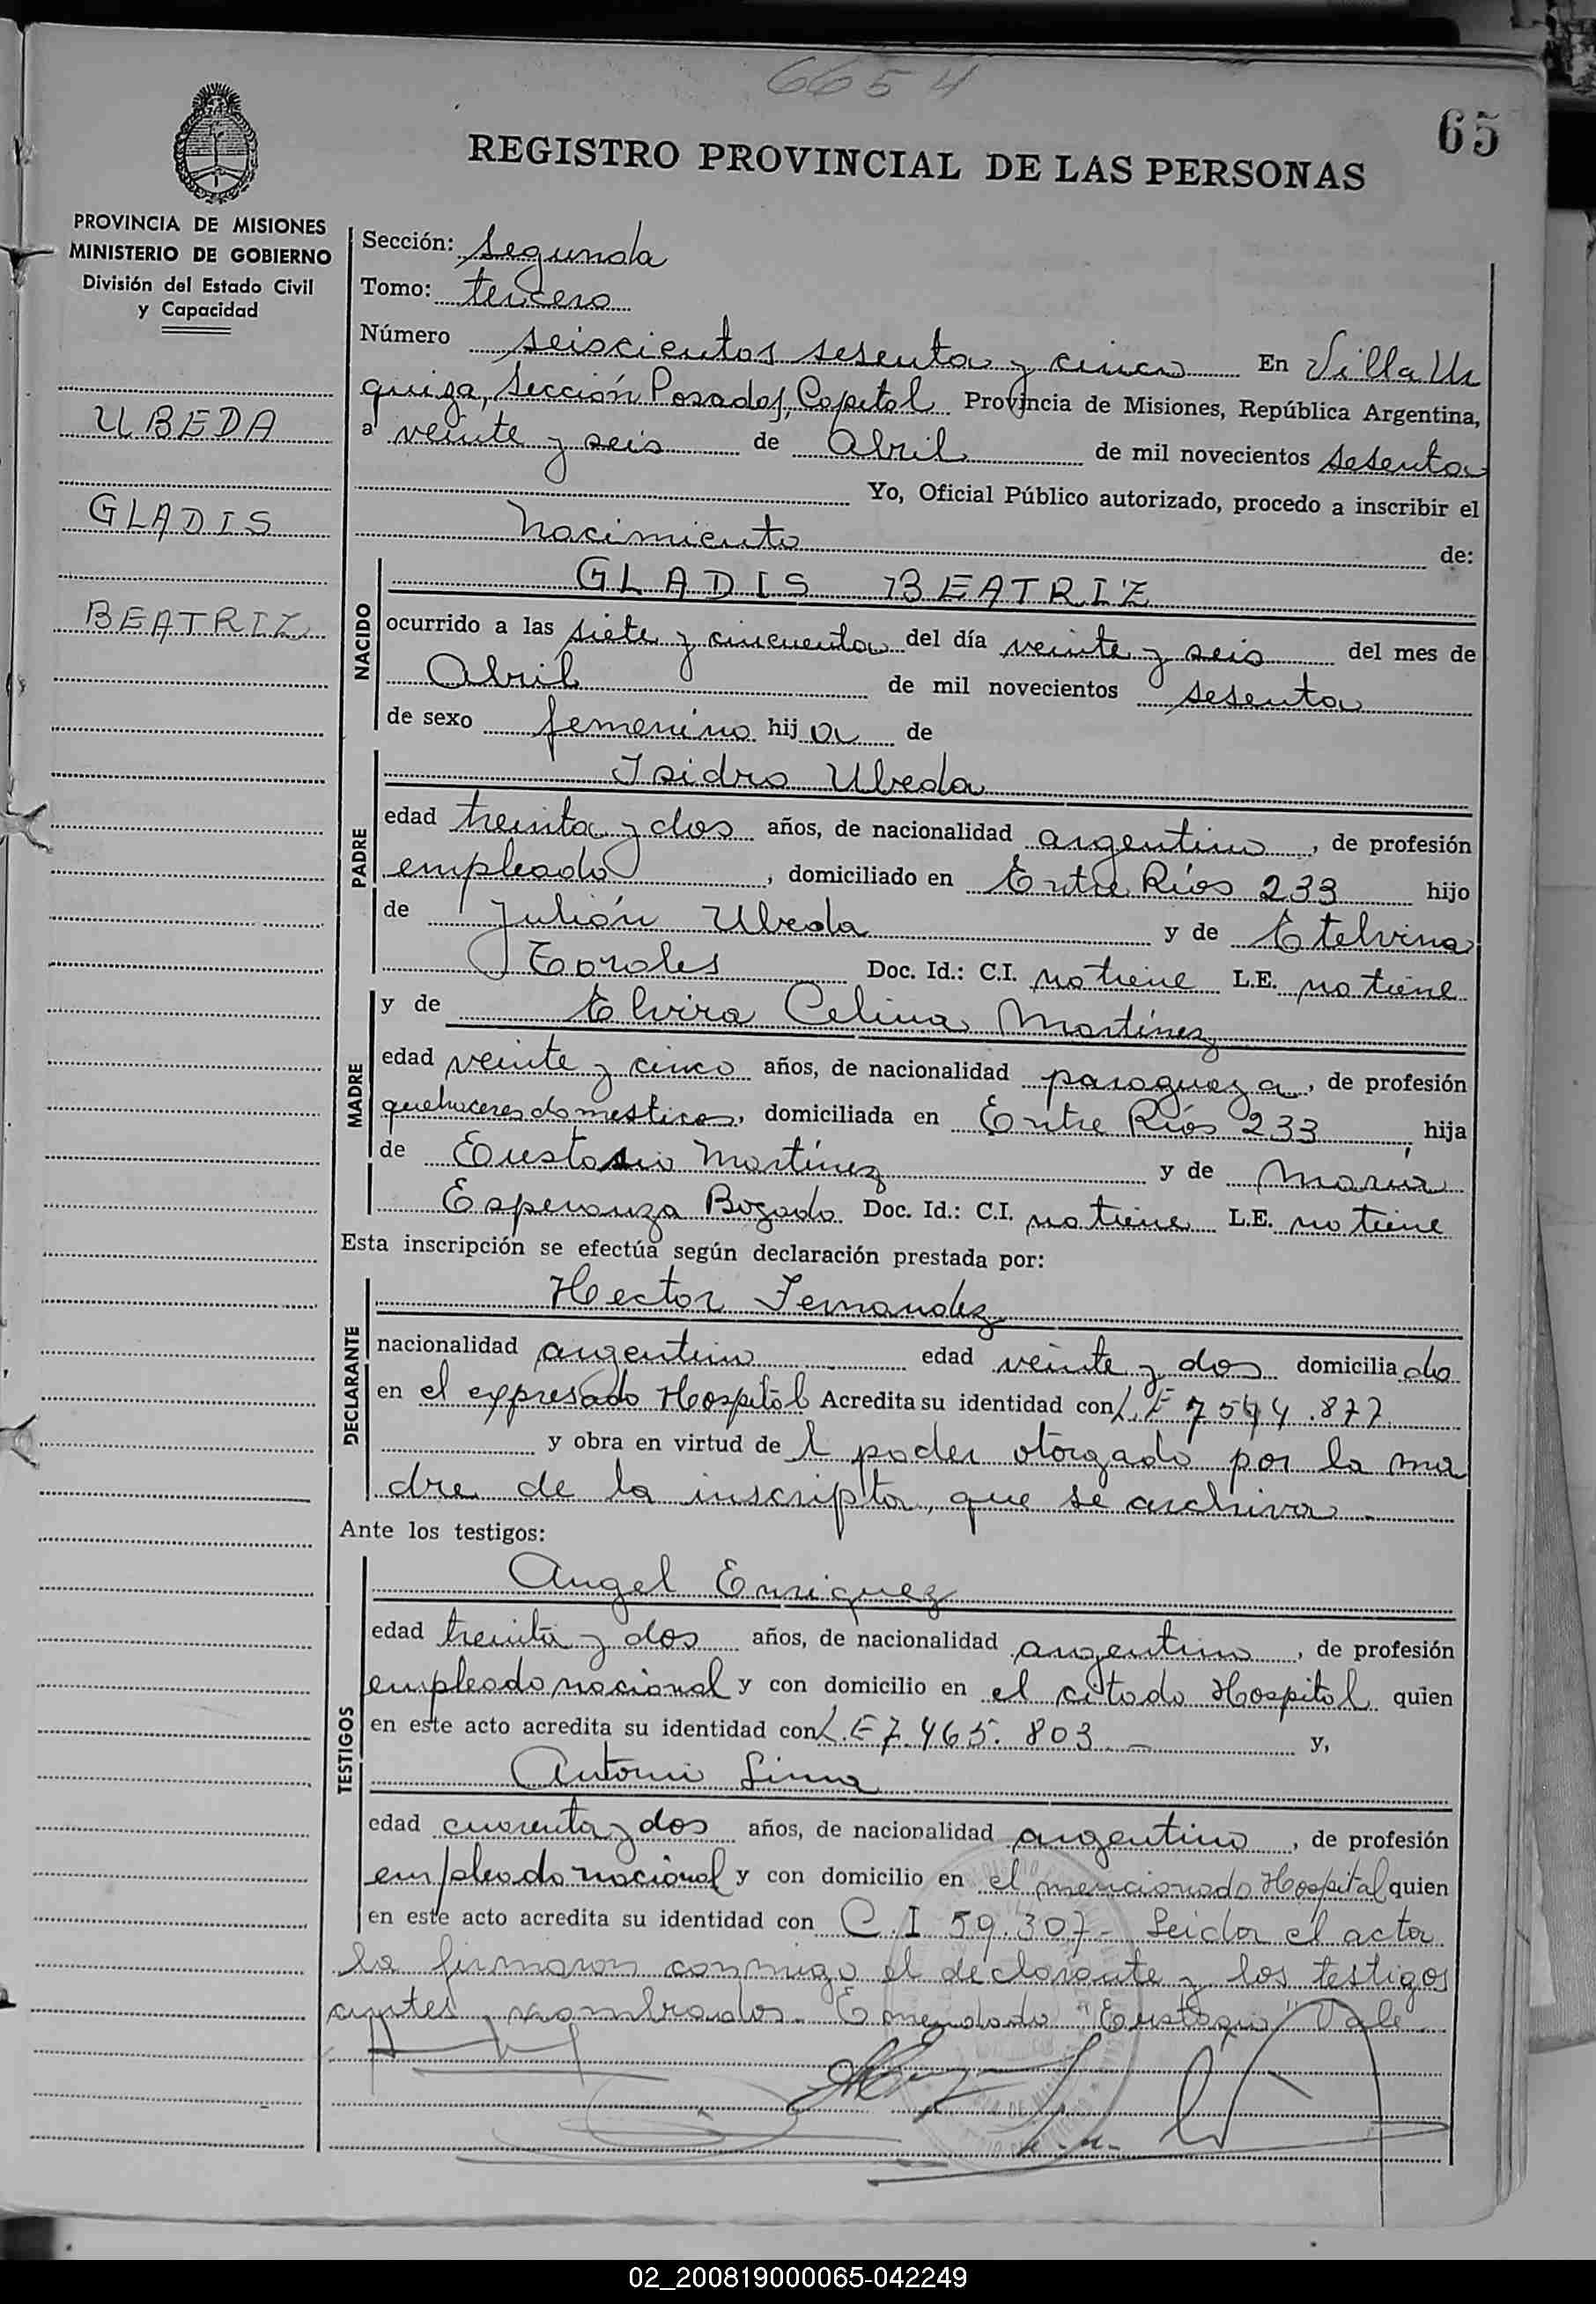 6654
65
REGISTRO PROVINCIAL DE LAS PERSONAS
PROVINCIA DE MISIONES
MINISTERIO DE GOBIERNO
División del Estado Civil
y Capacidad
UBEDA
GLADIS
BEATRIZ
Sección: segunda
Tomo: tercero
Número seiscientos sesenta y cinco En Villa Ur
quiza, Sección Posadas, Capital Provincia de Misiones, República Argentina,
a veinte y seis de Abril de mil novecientos sesenta
Yo, Oficial Público autorizado, procedo a inscribir el
nacimiento de:
NACIDO
GLADIS BEATRIZ
ocurrido a las siete y cincuenta del día veinte y seis del mes de
Abril de mil novecientos sesenta
de sexo femenino hija de
PADRE
Isidro Ubeda
edad treinta y dos años, de nacionalidad argentino, de profesión
empleado, domiciliado en Entre Ríos 233 hijo
de Julián Ubeda y de Etelvina
Toroles Doc. Id.: C.I. no tiene L.E. no tiene
MADRE
y de Elvira Celina Martínez
edad veinte y cinco años, de nacionalidad paraguaya, de profesión
quehaceres domesticos, domiciliada en Entre Ríos 233, hija
de Eustasio Martínez y de María
Esperanza Bogado Doc. Id.: C.I. no tiene L.E. no tiene
Esta inscripción se efectúa según declaración prestada por:
DECLARANTE
Hector Fernandez
nacionalidad argentino edad veinte y dos domiciliado
en el expresado Hospital Acredita su identidad con L.E 7.544.877
y obra en virtud del poder otorgado por la ma
dre de la inscripta, que se archiva.-
Ante los testigos:
TESTIGOS
Angel Enriquez
edad treinta y dos años, de nacionalidad argentino, de profesión
empleado nacional y con domicilio en el citado Hospital quien
en este acto acredita su identidad con L.E 7.465.803 - y,
Antonio Lima
edad cuarenta y dos años, de nacionalidad argentino, de profesión
empleado nacional y con domicilio en el mencionado Hospital quien
en este acto acredita su identidad con C.I 59.307- Leida el acta
la firmaron conmigo el declarante y los testigos
antes nombrados. Emendado "Eustaquio" Vale
02_200819000065-042249